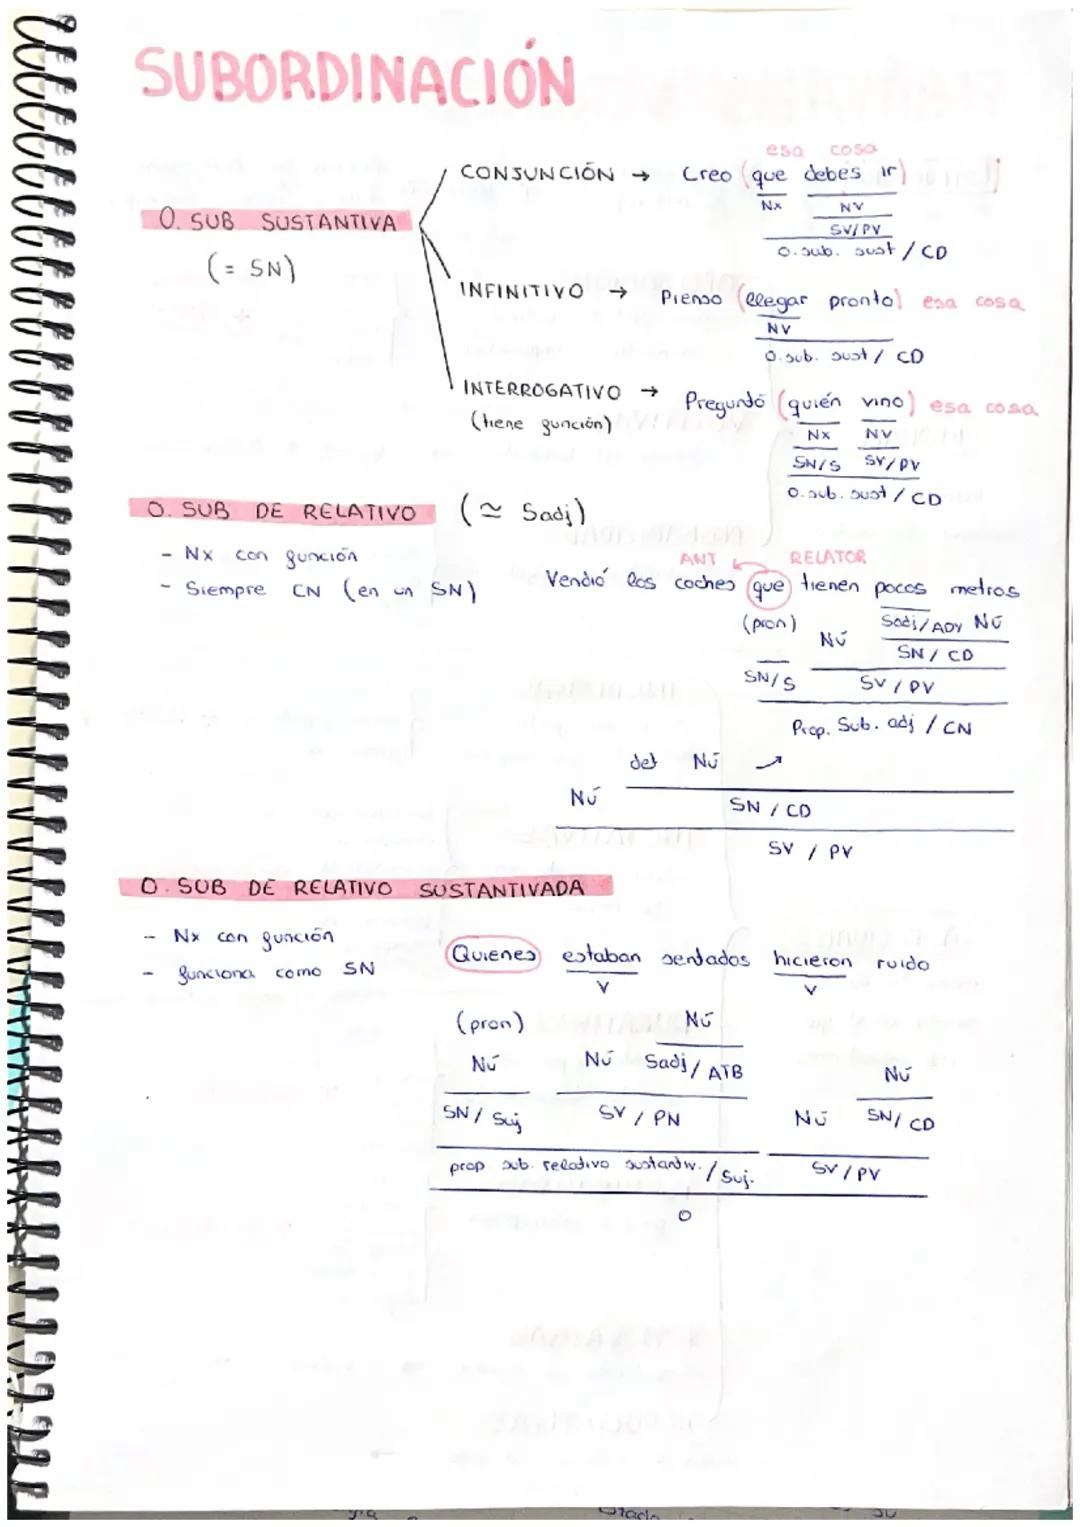 SUBORDINACIÓN
esa cosa
CONJUNCIÓN → Creo (que debes ir)
Nx NV
O. SUB SUSTANTIVA
SV/PV
O.sub. sust / CD
(= SN)
INFINITIVO → Pienso (llegar pronto) esa cosa
NV
O.sub. sust / CD
INTERROGATIVO → Preguntó (quién vino) esa cosa
(tiene función)
Nx NV
SN/S SV/PV
O.sub. sust / CD
O. SUB DE RELATIVO (≃ Sadj)
- Nx con función
ANT RELATOR
- Siempre CN (en un SN)
Vendió los coches que tienen pocos metros
(pron) Nú Sadj/ADY Nú
SN / CD
SN/S SV / PV
Prop. Sub. adj / CN
det Nú
Nú SN / CD
SV / PV
O. SUB DE RELATIVO SUSTANTIVADA
- Nx con función
- funciona como SN
Quienes estaban sentados hicieron ruido
V V
(pron) Nú
Nú Nú Sadj / ATB Nú
SN / Suj SV / PN Nú SN / CD
prop sub. relativo sustantiv. / Suj. SV / PV
O